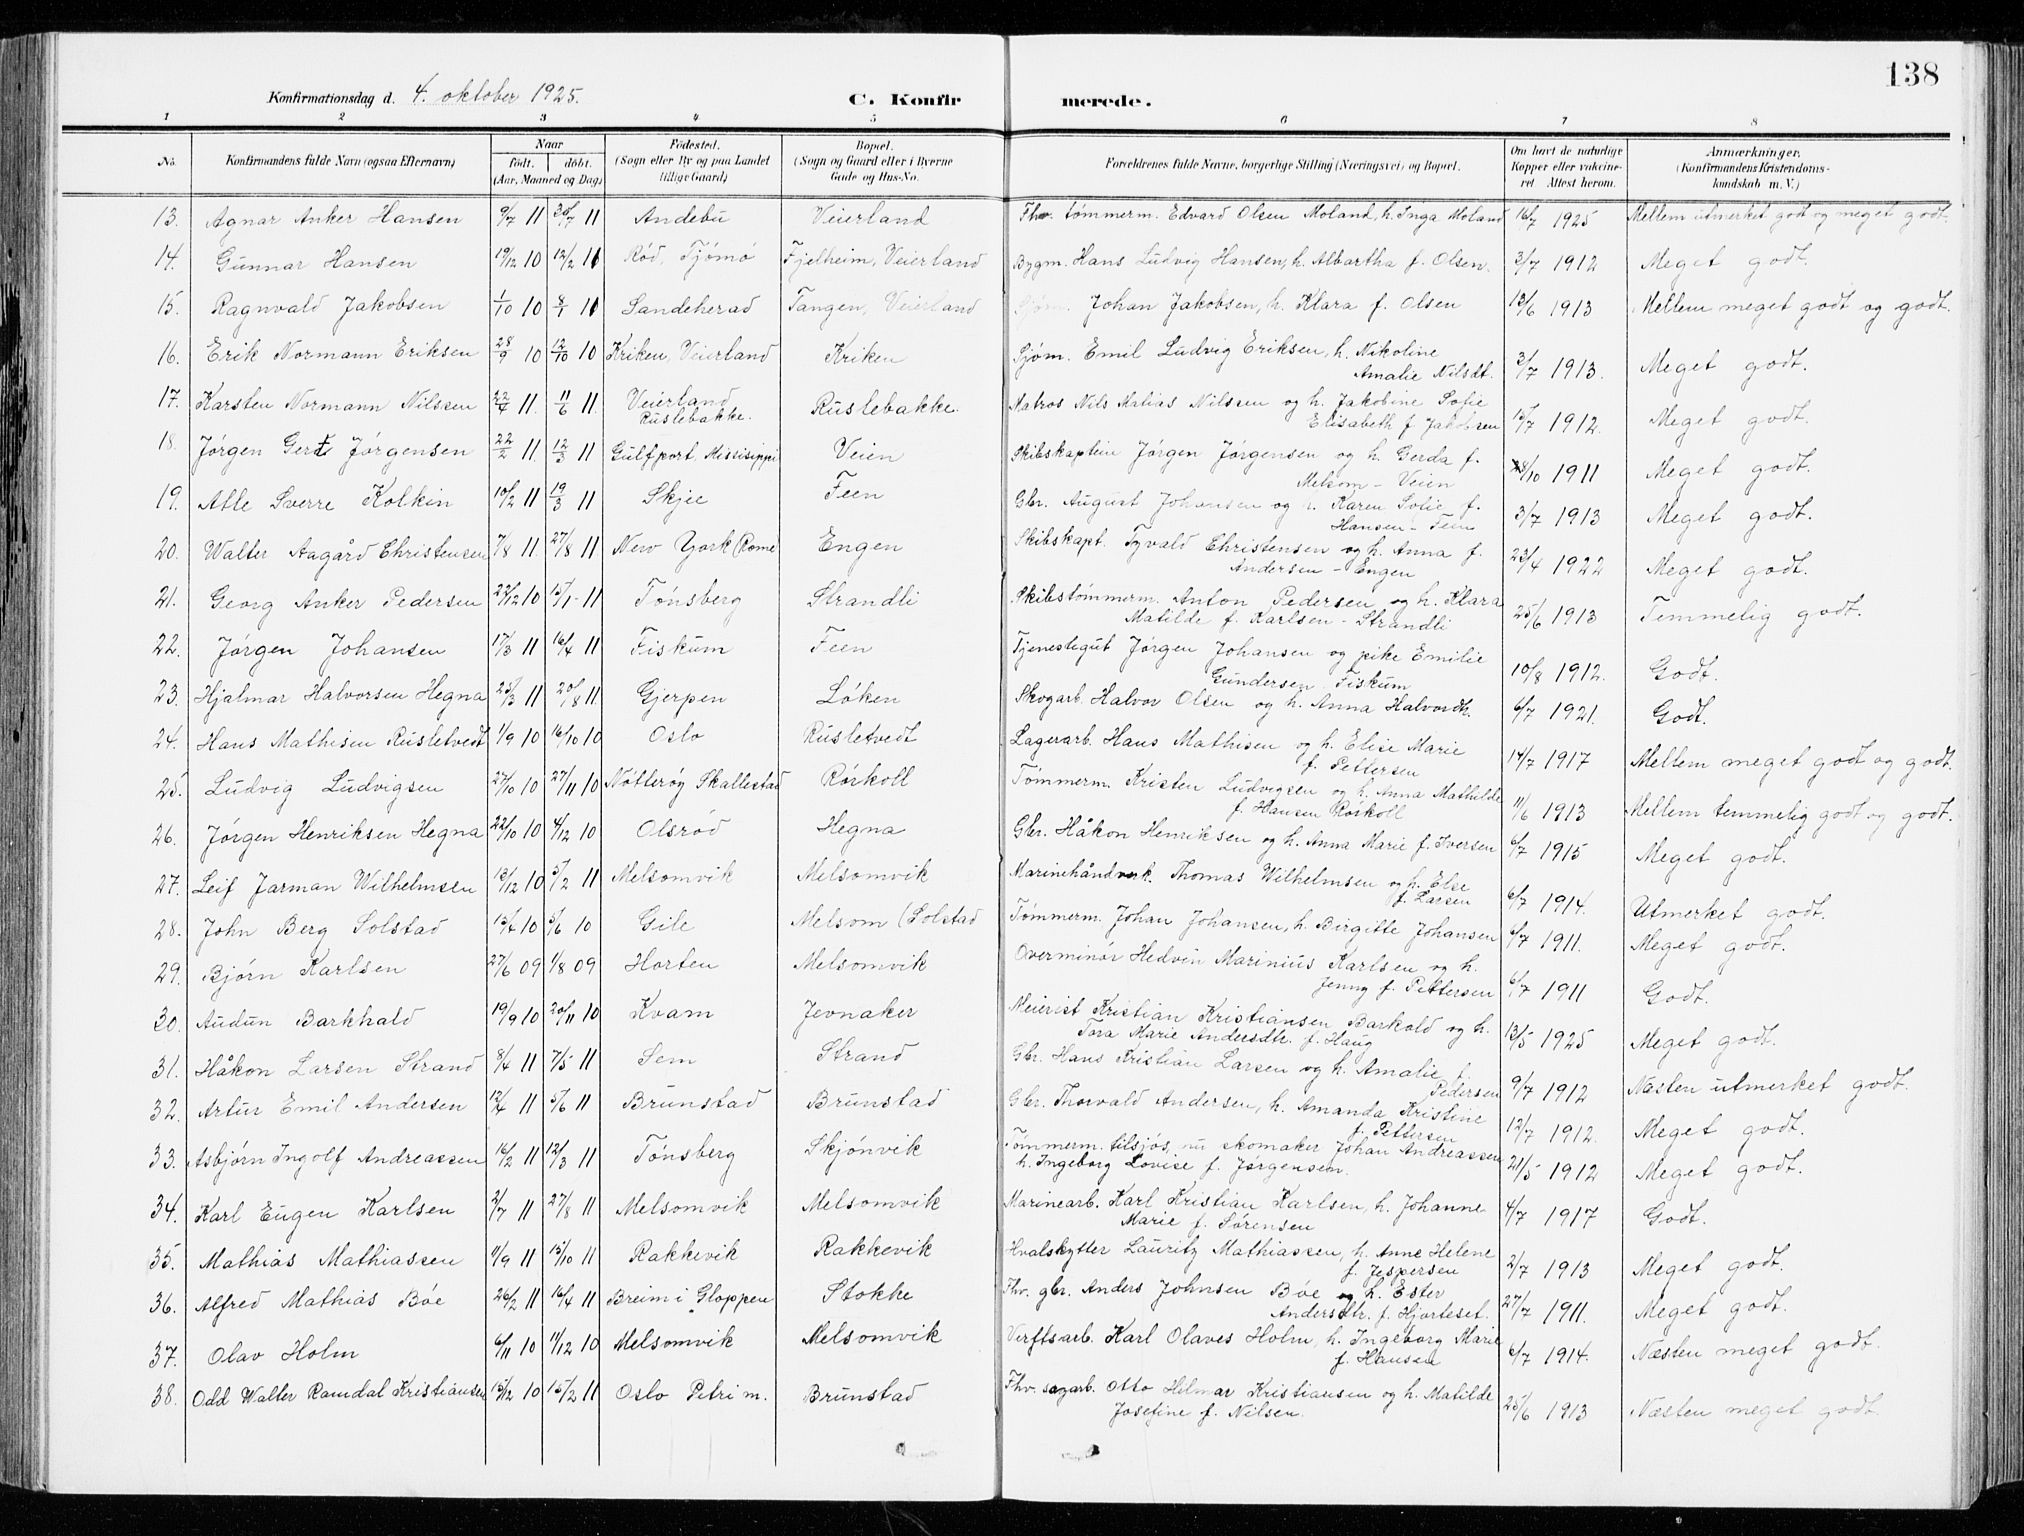 138
Konfirmationsdag d. 4. oktober 1925. C. Konfirmerede.
1 2 3 4 5 6 7 8
No. Konfirmandens fulde Navn (ogsaa Efternavn) Naar født. døbt. (Aar, Maaned og Dag) Fødested. (Sogn eller By og paa Landet tillige Gaard) Bopæl. (Sogn og Gaard eller i Byerne Gade og Hus-No. Forældrenes fulde Navne, borgerlige Stilling (Næringsvei) og Bopæl. Om havt de naturlige Kopper eller vakcineret. Attest herom. Anmærkninger. (Konfirmandens Kristendomskundskab m. V.)
13. Agnar Anker Hansen 9/7 11 26/7 11 Andebu Veierland Fhv. tømmerm. Edvard Olsen Moland, h. Inga Moland 16/7 1925 Mellem utmerket godt og meget godt.
14. Gunnar Hansen 19/12 10 12/2 11 Rød, Tjømø Fjelheim, Veierland Bygm. Hans Ludvig Hansen, h. Albartha f. Olsen. 3/7 1912 Meget godt.
15. Ragnvald Jakobsen 1/10 10 8/1 11 Sandeherad Tangen, Veierland Sjøm. Johan Jakobsen, h. Klara f. Olsen 13/6 1913 Mellem meget godt og godt.
16. Erik Normann Eriksen 28/9 10 12/10 10 Kriken, Veierland Kriken Sjøm. Emil Ludvig Eriksen, h. Nikoline
Amalie Nilsdt. 3/7 1913. Meget godt.
17. Karsten Normann Nilssen 22/4 11. 11/6 11. Veierland Ruslebakke. Ruslebakke. Matros Nils Matias Nilssen og h. Jakobine Sofie
Elisabeth f. Jakobsen 15/7 1912. Meget godt.
18. Jørgen Gert Jørgensen 22/2 11. 12/3 11 Gulfport, Missisippi Veien Skibskaptein Jørgen Jørgensen og h. Gerda f.
Melsom - Veien 28/10 1911 Meget godt.
19. Atle Sverre Kolkin 10/2 11 19/3 11 Skjee Feen Gbr. August Johansen og h. Karen Sofie f.
Hansen - Feen 3/7 1913 Meget godt.
20. Walter Aagård Christensen 7/8 11. 27/8 11 New York (Rome Engen Skibskapt. Tyvald Christensen og h. Anna f.
Andersen - Engen 23/4 1922 Meget godt.
21. Georg Anker Pedersen 22/12 10 15/1 11 Tønsberg Strandli Skibstømmerm. Anton Pedersen og h. Klara
Matilde f. Karlsen - Strandli 25/6 1913 Temmelig godt.
22. Jørgen Johansen 17/3 11 16/4 11 Fiskum Feen Tjenestegut Jørgen Johansen og pike Emilie
Gundersen Fiskum 10/8 1912. Godt.
23. Hjalmar Halvorsen Hegna 25/3 11 20/8 11 Gjerpen Løken Skogarb. Halvor Olsen og h. Anna Halvordt. 6/7 1921. Godt.
24. Hans Mathisen Rusletvedt 1/9 10 16/10 10 Oslo Rusletvedt Lagerarb. Hans Mathisen og h. Elise Marie
f. Pettersen 14/7 1917 Mellem meget godt og godt.
25. Ludvig Ludvigsen 27/10 10 27/11 10 Nøtterøy Skallestad Rørkoll Tømmerm. Kristen Ludvigsen og h. Anna Mathilde
f. Hansen Rørkoll 11/6 1913 Mellem temmelig godt og godt.
26. Jørgen Henriksen Hegna 22/10 10 4/12 10 Olsrød Hegna Gbr. Håkon Henriksen og h. Anna Marie f. Iversen 6/7 1915 Meget godt.
27. Leif Jarman Wilhelmsen 13/12 10 5/2 11 Melsomvik Melsomvik Marinehåndverk. Thomas Wilhelmsen og h. Else
f. Larsen 6/7 1914. Utmerket godt.
28. John Berg Solstad 15/4 10 5/6 10 Gile Melsom (Solstad Tømmerm. Johan Johansen, h. Birgitte Johansen 6/7 1911. Meget godt.
29. Bjørn Karlsen 27/6 09 1/8 09 Horten Melsomvik Overminør Hedvin Marinius Karlsen og h.
Jenny f. Pettersen 6/7 1911 Godt.
30. Audun Barkhald 19/9 10 20/11 10 Kvam Jevnaker Meierist Kristian Kristiansen Barkold og h.
Tora Marie Andersdtr. f. Haug 13/5 1925 Meget godt.
31. Håkon Larsen Strand 8/4 11 7/5 11 Sem Strand Gbr. Hans Kristian Larsen og h. Amalie f.
Pedersen 9/7 1912 Næsten utmerket godt.
32. Artur Emil Andersen 12/4 11 5/6 11 Brunstad Brunstad Gbr. Thorvald Andersen, h. Amanda Kristine
f. Pettersen 12/7 1912. Meget godt.
33. Asbjørn Ingolf Andreassen 16/2 11 12/3 11 Tønsberg Skjønvik Tømmerm. tilsjøs, nu skomaker Johan Andreassen
h. Ingeborg Lovise f. Jørgensen. 21/5 1912 Meget godt.
34. Karl Eugen Karlsen 2/7 11 27/8 11 Melsomvik Melsomvik Marinearb. Karl Kristian Karlsen, h. Johanne
Marie f. Sørensen 4/7 1917 Godt.
35. Mathias Mathiassen 11/9 11 15/10 11 Rakkevik Rakkevik Hvalskytter Lauritz Mathiassen, h. Anne Helene
f. Jespersen 2/7 1913 Meget godt.
36. Alfred Mathias Bøe 26/2 11 16/4 11 Breim i Gloppen Stokke Fhv. gbr. Anders Johnsen Bøe og h. Ester
Andersdtr. f. Hjorteset. 27/7 1911. Meget godt.
37. Olav Holm 6/11 10 11/12 10 Melsomvik Melsomvik Verftsarb. Karl Olaves Holm, h. Ingeborg Marie
f. Hansen 6/7 1914. Næsten meget godt.
38. Odd Walter Ramdal Kristiansen 15/12 10 15/2 11 Oslo Petri m. Brunstad Fhv. sagarb. Otto Hilmar Kristiansen og h. Matilde
Josefine f. Nilsen. 25/6 1913 Næsten meget godt.